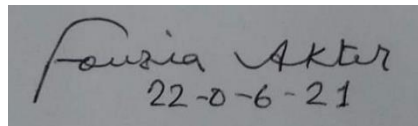 Fouzia Akter
22-0-6-21